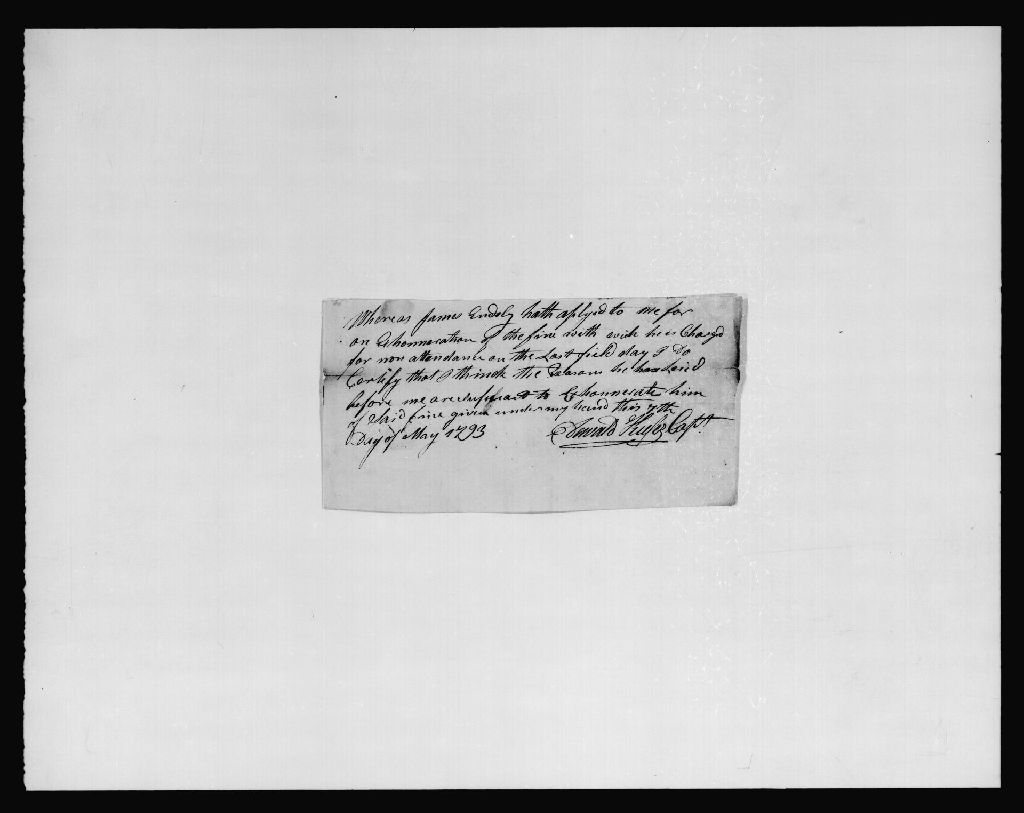 Whereas James Endsly hath aplyed to me for
on Exhonneration of the fine with wich he is Charg'd
for non attendance on the Last field day I Do
Certify that I think the Reasons he has Laid
before me are sufficient to Exhonnerate him
of Said fine given under my hand this 7th
Day of May 1793 Capt